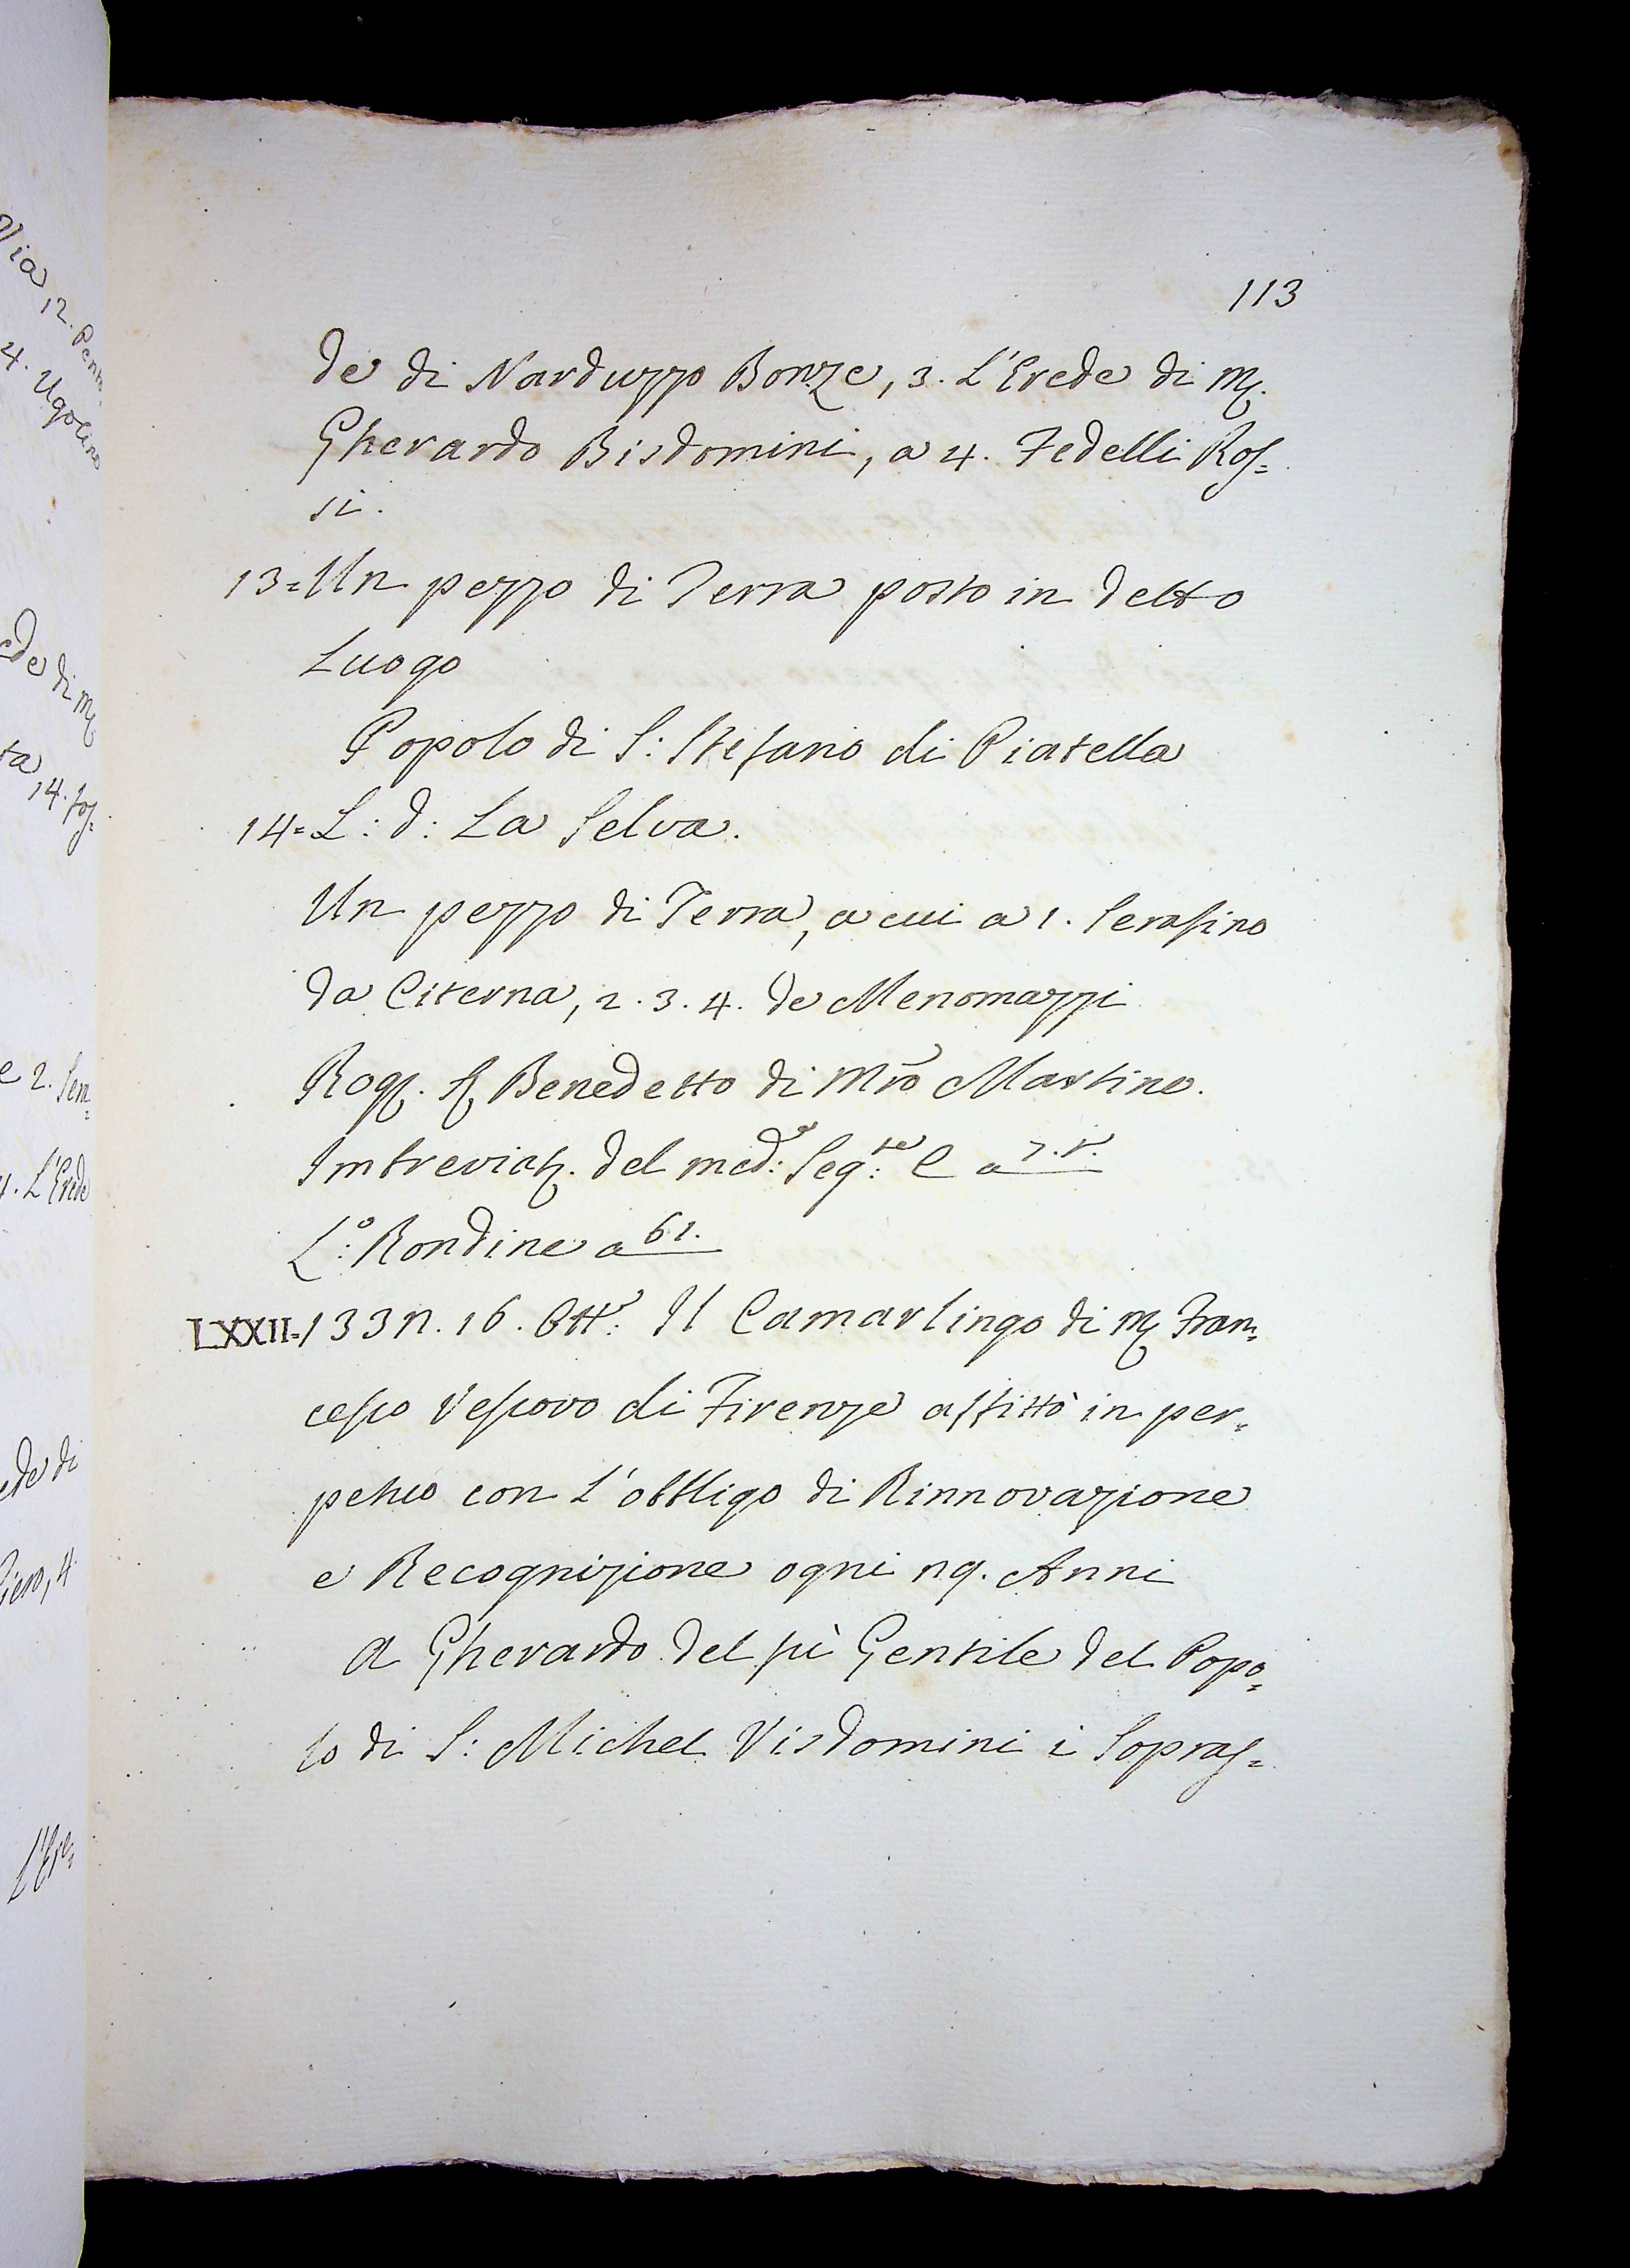 113
de di Narduzzo Bonze, 3. L'Erede di M.
Gherardo Bisdomini, a 4. Fedelli Ros=
si.
13= Un pezzo di Terra posto in detto
Luogo
Popolo di S: Stefano di Piatella
14= L: d: La Selva.
Un pezzo di Terra, a cui a 1. Serafino
da Citerna, 2. 3. 4. de Menomazzi
Rog. S. Benedetto di Mro Martino.
Imbreviat. del med:o Seg:te C a 7.t.
L:o Rondine a 61.
LXXII= 133n. 16. Ott:e Il Camarlingo di M Fran=
cesco Vescovo di Firenze affittò in per=
petuo con l'obbligo di Rinnovazione
e Recognizione ogni nq. Anni
A Gherardo del fù Gentile del Popo=
lo di S: Michel Visdomini i Sopras=